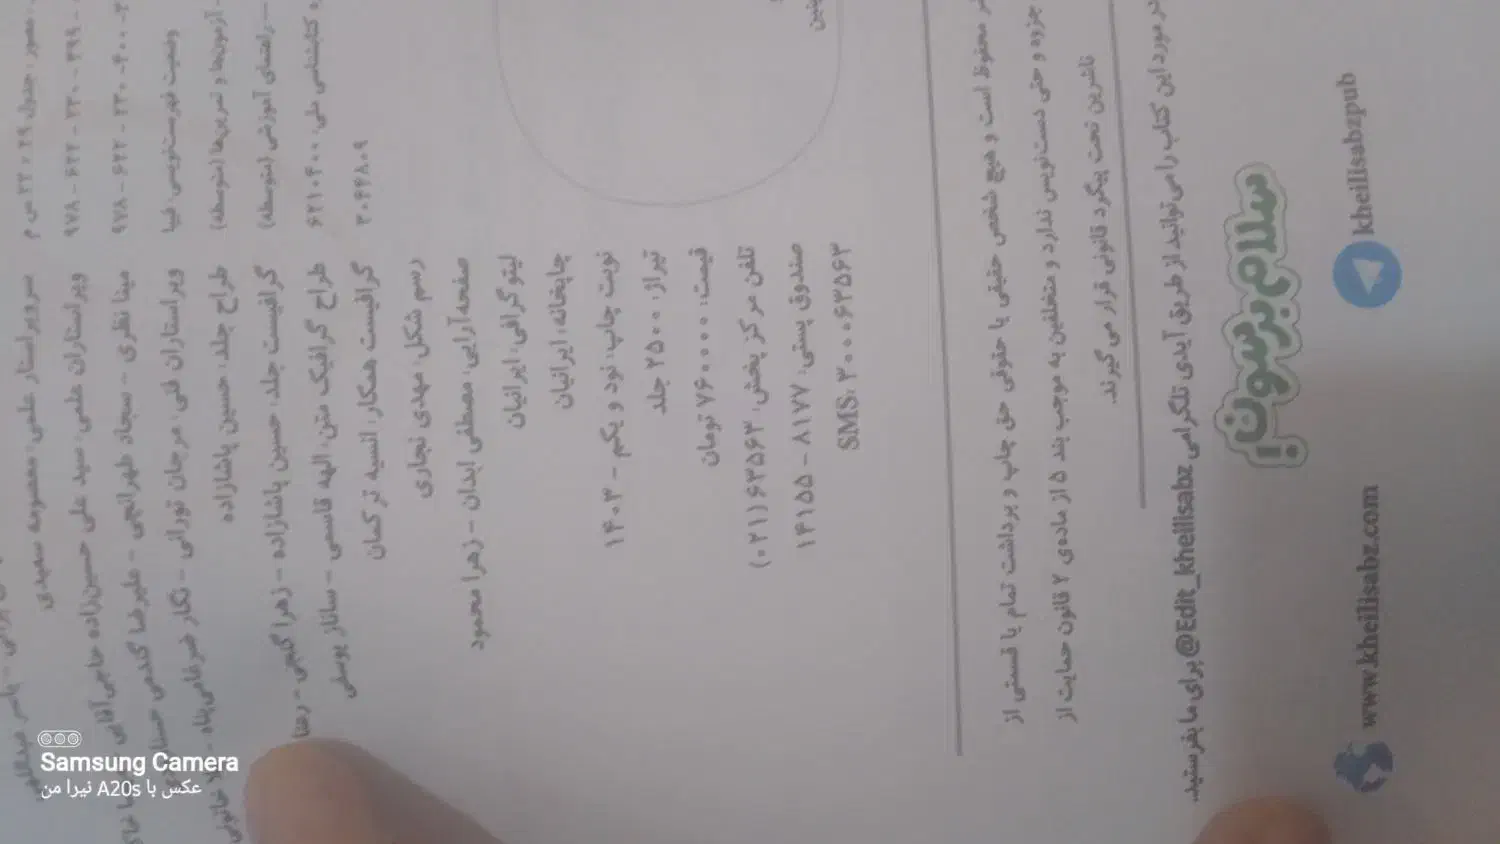 مصور، جدول ۲۹×۲۲ س م
وضعیت فهرست‌نویسی: فیپا
۶۲۱۰۴۰۰
۳۰۶۴۸۰۹
سرویراستار علمی: معصومه سعیدی
ویراستاران علمی: سید علی حسین‌زاده حاجی‌آقایی
مینا نظری - سجاد طهرانچی - علیرضا گندمی
ویراستاران فنی: مرجان تورانی - نگار ضرغامی‌پناه
طراح جلد: حسین پاشازاده
گرافیست جلد: حسین پاشازاده - زهرا گنجی - رضا
طراح گرافیک متن: الهه قاسمی - ساناز یوسلی
گرافیست همکار: انسیه ترکمان
رسم شکل: مهدی نجاری
صفحه‌آرایی: مصطفی ابدان - زهرا محمود
لیتوگرافی: ایرانیان
چاپخانه: ایرانیان
نوبت چاپ: نود و یکم - ۱۴۰۳
تیراژ: ۲۵۰۰ جلد
قیمت: ۷۶۰۰۰۰ تومان
تلفن مرکز پخش: ۶۳۵۶۳ (۰۲۱)
صندوق پستی: ۸۱۷۷ - ۱۴۱۵۵
SMS: ۳۰۰۰۶۳۵۶۳
محفوظ است و هیچ شخص حقیقی یا حقوقی حق چاپ و برداشت تمام یا قسمتی از
جزوه و حتی دست‌نویس ندارد و متخلفین به موجب بند ۵ از ماده‌ی ۲ قانون حمایت از
ناشرین تحت پیگرد قانونی قرار می‌گیرند.
در مورد این کتاب را می‌توانید از طریق آیدی تلگرامی @Edit_kheilisabz برای ما بفرستید.
سلام بر سون!
kheilisabzpub
www.kheilisabz.com
Samsung Camera
عکس با A20s نیرا من